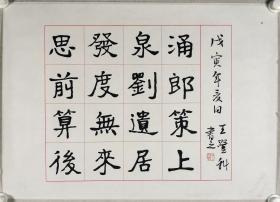 涌郎策上
泉劉遺居
發度無來
思前算後
戊寅年夏日
王登科
書之